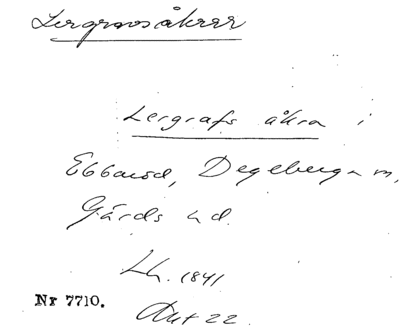 Lergravsåkrar
Lergrafs åkra i
Ebbarod, Degeberga m,
Gärds hd.
Lh. 1841
Akt 22.
Nr 7710.